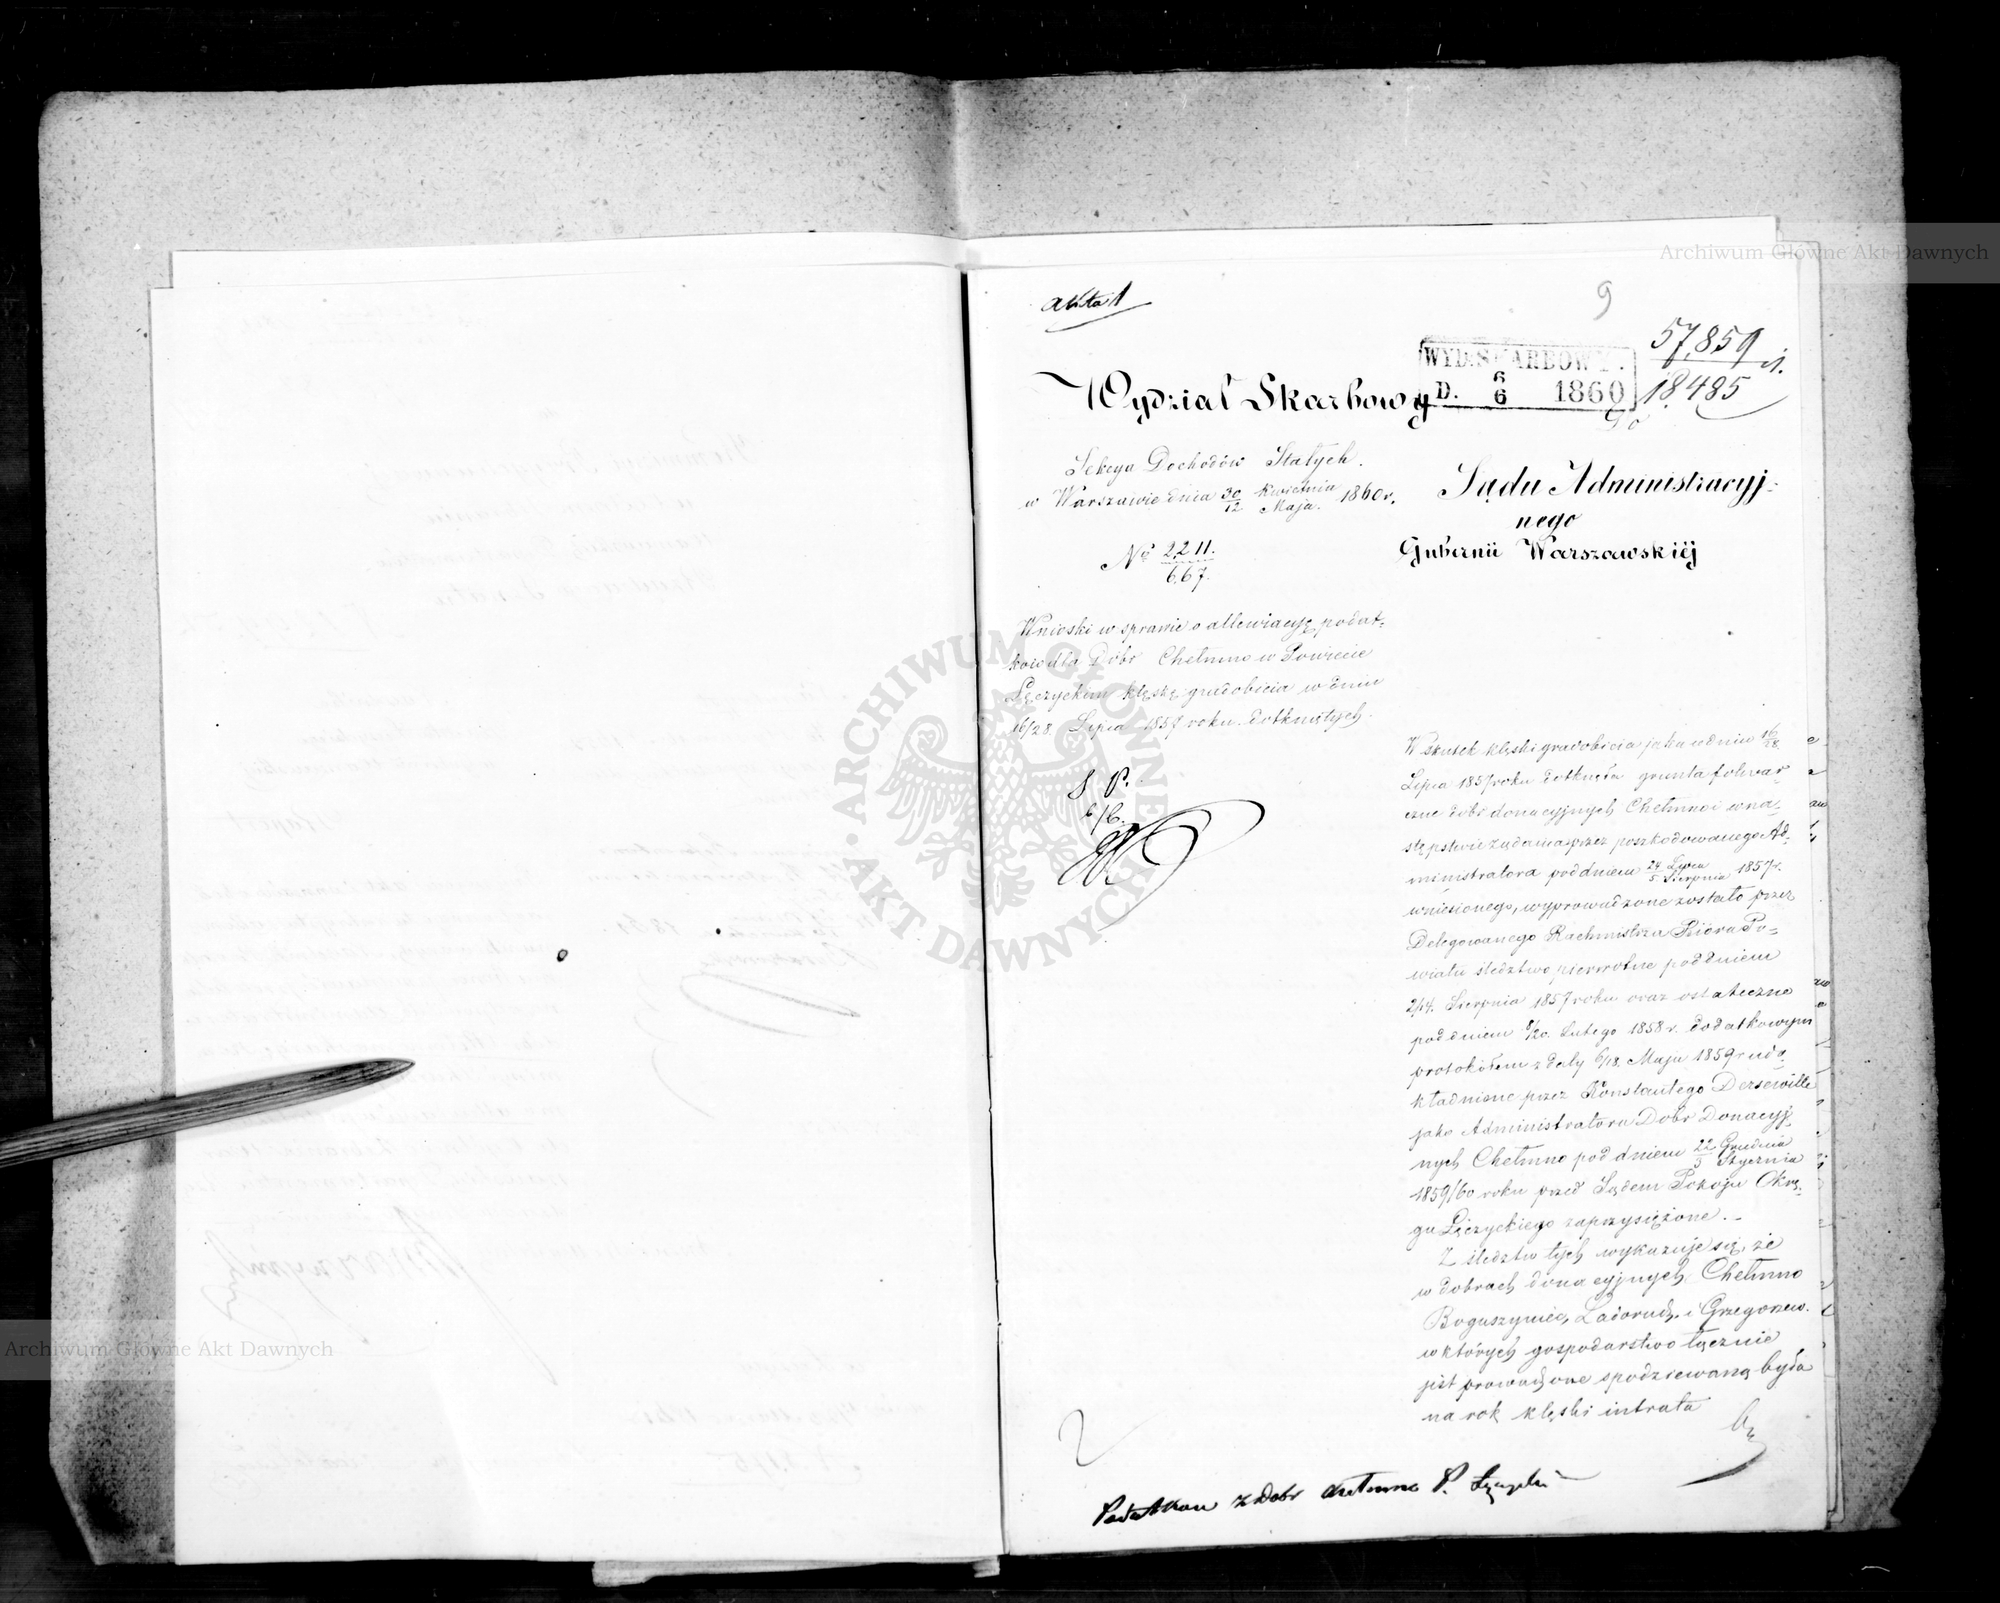 Archiwum Główne Akt Dawnych
akta 1
9
57,859
18485
WYD. SKARBOWY.
D. 6/6 1860
Wydział Skarbowy
Do
Sekcya Dochodów Stałych.
w Warszawie dnia 30/12 Kwietnia/Maja 1860 r.
Sądu Administracyj-
nego
Gubernii Warszawskiéj
No 2211.
667.
Wnioski w sprawie o allewiacyę podat-
kow dla Dóbr Chełmno w Powiecie
Łęczyckim klęską gradobicia w dniu
16/28 Lipca 1857 roku dotkniętych.
6/6.
ARCHIWUM GŁÓWNE AKT DAWNYCH
W skutek klęski gradobicia jaka w dniu 16/28
Lipca 1857 roku dotknęła grunta folwar-
czne dóbr donacyjnych Chełmno i w na-
stępstwie żądania przez poszkodowanego Ad-
ministratora pod dniem 24 Lipca/5 Sierpnia 1857 r.
wniesionego, wyprowadzone zostało przez
Delegowanego Rachmistrza Bióra Po-
wiatu śledztwo pierwotne pod dniem
2/14. Sierpnia 1857 roku oraz ostateczne
pod dniem 8/20. Lutego 1858 r. dodatkowym
protokółem z daty 6/18. Maja 1859 r uda-
kładnione przez Konstantego Dersewille
jako Administratora Dóbr Donacyj-
nych Chełmno pod dniem 22 Grudnia/3 Stycznia
1859/60 roku przed Sądem Pokoju Okrę-
gu Łęczyckiego zaprzysiężone.-
Z śledztw tych wykazuje się, że
w dobrach donacyjnych Chełmno
Boguszyniec, Ladorudz, i Grzegorzew.
w których gospodarstwo łącznie
jest prowadzone spodziewaną była
na rok klęski intrata
Podatkow z Dobr Chełmno P. Łęczycki
Archiwum Główne Akt Dawnych